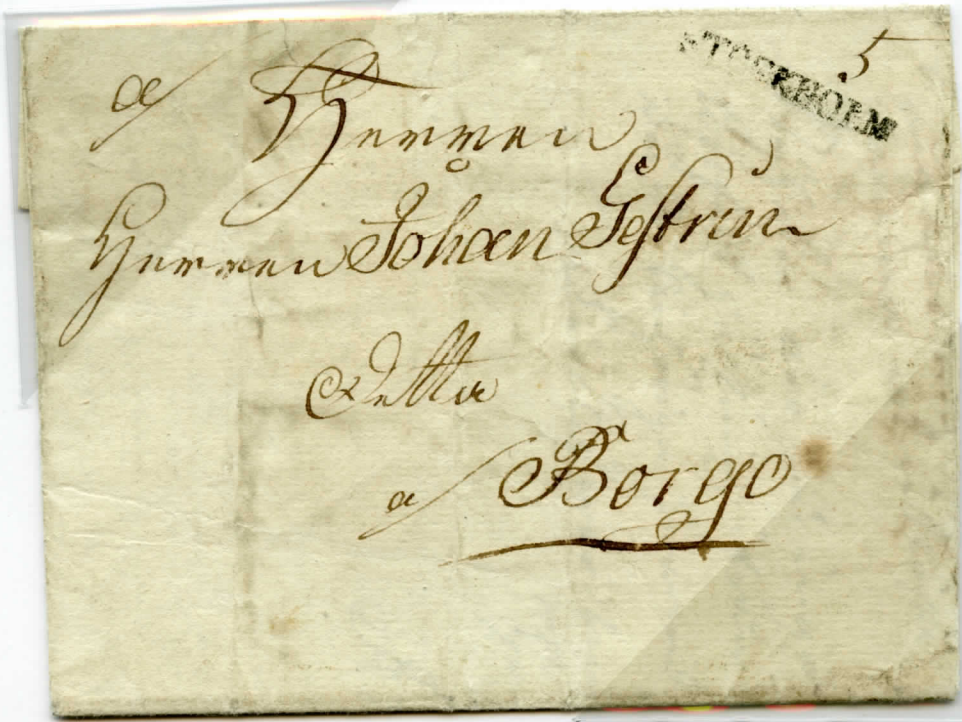 STOCKHOLM
5
a/ Herren
Herren Johan Gestrin
Detta
a/ Borgo